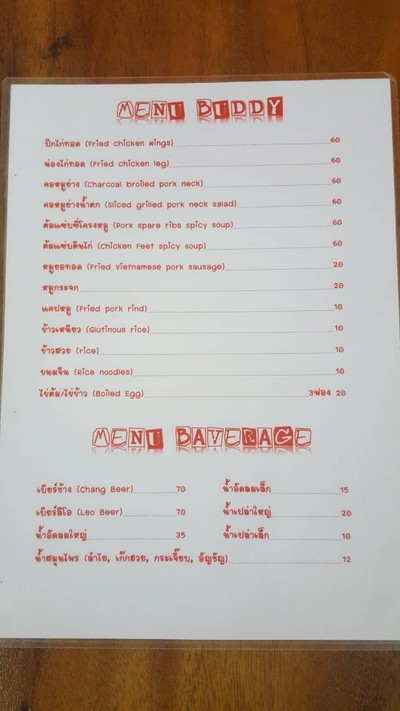 MENU BUDDY
ปีกไก่ทอด (Fried chicken wings) 60
น่องไก่ทอด (Fried chicken leg) 60
คอหมูย่าง (Charcoal broiled pork neck) 60
คอหมูย่างน้ำตก (Sliced grilled pork neck salad) 60
ต้มแซ่บซี่โครงหมู (Pork spare ribs spicy soup) 60
ต้มแซ่บตีนไก่ (Chicken Feet spicy soup) 60
หมูยอทอด (Fried Vietnamese pork sausage) 20
หมูกระจก 20
แคปหมู (Fried pork rind) 10
ข้าวเหนียว (Glutinous rice) 10
ข้าวสวย (rice) 10
ขนมจีน (Rice noodles) 10
ไข่ต้ม/ไข่ข้าว (Boiled Egg) 3ฟอง 20
MENU BAVERAGE
เบียร์ช้าง (Chang Beer) 70 น้ำอัดลมเล็ก 15
เบียร์ลีโอ (Leo Beer) 70 น้ำเปล่าใหญ่ 20
น้ำอัดลมใหญ่ 35 น้ำเปล่าเล็ก 10
น้ำสมุนไพร (ลำไย, เก๊กฮวย, กระเจี๊ยบ, อัญชัญ) 12